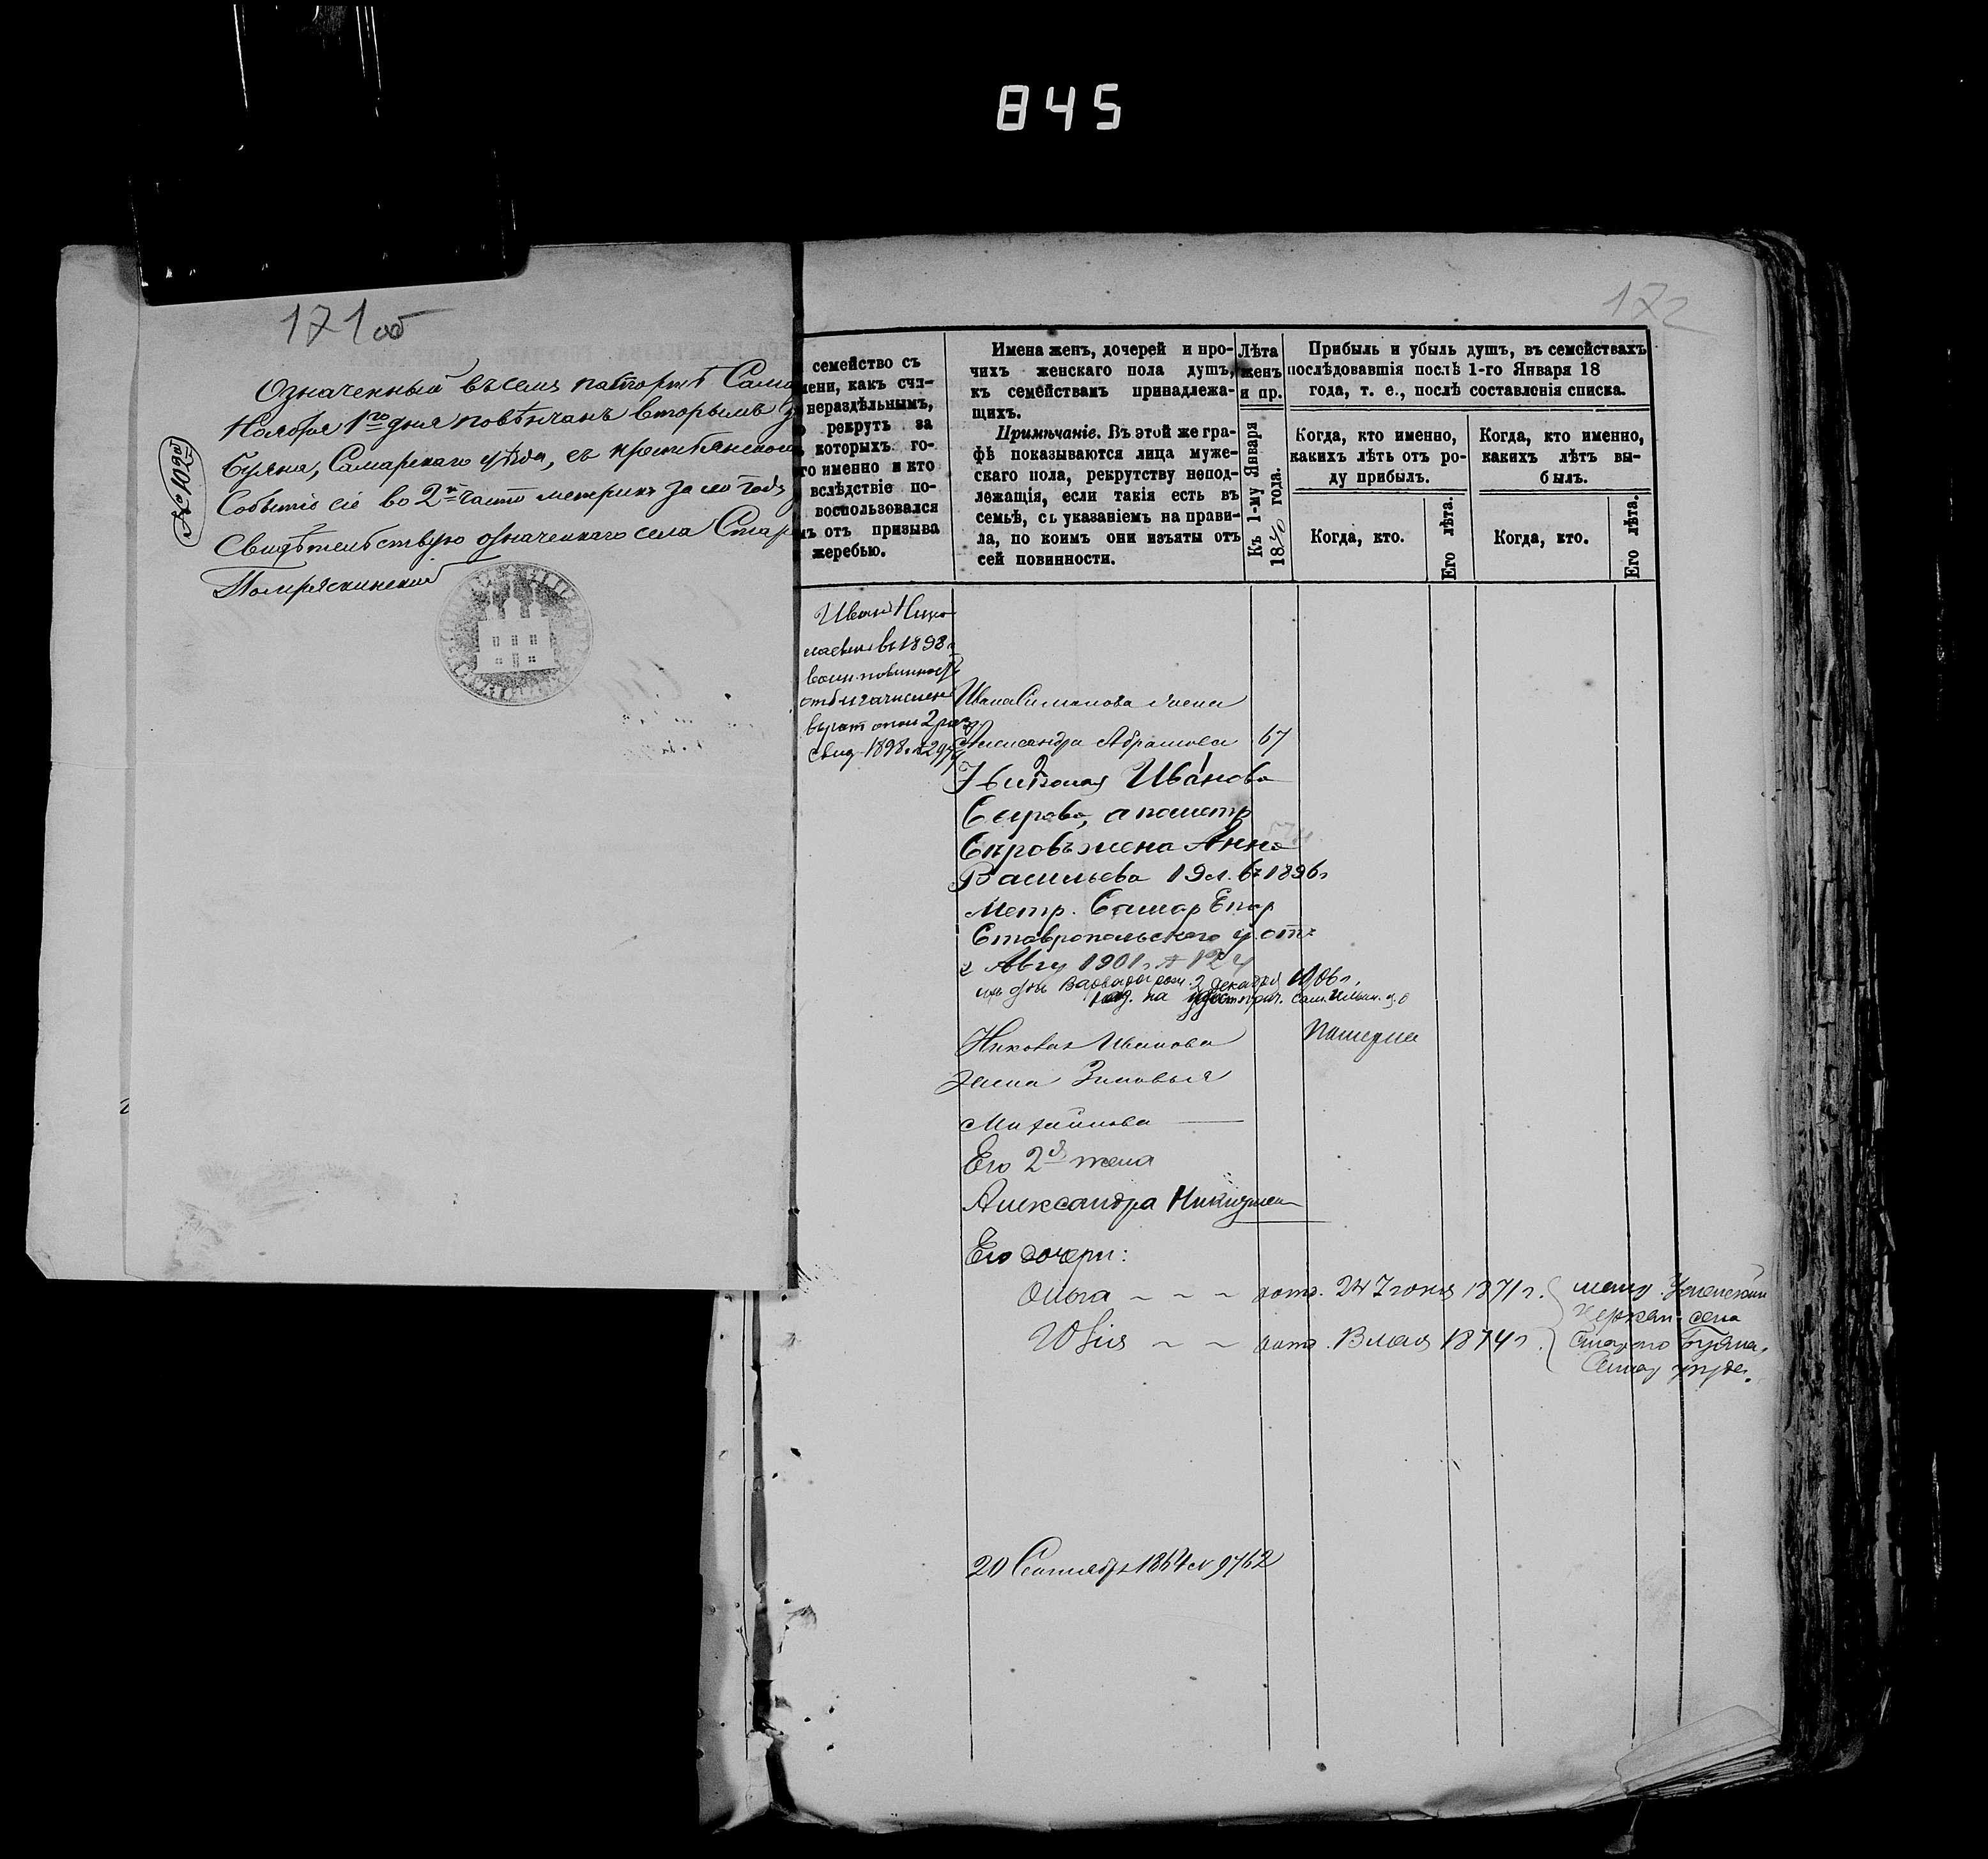 845
171 об
Означенный въ семъ паспортѣ Сама
Ноября 1го дня повѣнчанъ вторымъ
Буяна, Самарскаго уѣзда, съ крестьянскою
Событіе сіе во 2й части метрикъ за сей годъ
Свидѣтельствую означеннаго села Стар
Помряскинскій
№ 102й
172
семейство съ
мени, какъ счи-
нераздѣльнымъ,
рекрутъ за
которыхъ го-
го именно и кто
вслѣдствіе по-
воспользовался
мъ отъ призыва
жеребью.
Имена женъ, дочерей и про-
чихъ женскаго пола душъ,
къ семействамъ принадлежа-
щихъ.
Примѣчаніе. Въ этой же гра-
фѣ показываются лица муже-
скаго пола, рекрутству непод-
лежащія, если такія есть въ
семьѣ, съ указаніемъ на прави-
ла, по коимъ они изъяты отъ
сей повинности.
Лѣта
женъ
и пр.
Къ 1-му Января
18 года.
Прибыль и убыль душъ, въ семействахъ
послѣдовавшія послѣ 1-го Января 18
года, т. е., послѣ составленія списка.
Когда, кто именно,
какихъ лѣтъ отъ ро-
ду прибылъ.
Когда, кто.
Его лѣта.
Когда, кто именно,
какихъ лѣтъ вы-
былъ.
Когда, кто.
Его лѣта.
Иванъ Нико
лаевъ въ 1898 г
воин. повинность
отб. и зачисленъ
въ рат опол 2 раз
свид. 1898 №
Ивана Симонова жена
Александра Абрамова 67
Николая Иванова
Сѣрова, а по метр
Сѣровъ жена Анна
Васильева 19 л. въ 1896 г
Метр. Самар Епар
Ставропольскаго у. отъ
2 Авгу 1901 г № 124
ихъ дочь Варвара рож. 2 декабря 1906 г.
Николая Иванова
жена Зиновья
Михайлова
Померла
Его 2я жена
Александра Никифоровна
Его дочери:
Ольга - - - рожд. 24 Іюня 1871 г. метр. Успенской
церкви села
Юлія - - рожд. 13 мая 1874 г. Стараго Буяна,
Самар уѣзда.
20 Сентября 1864 № 9762